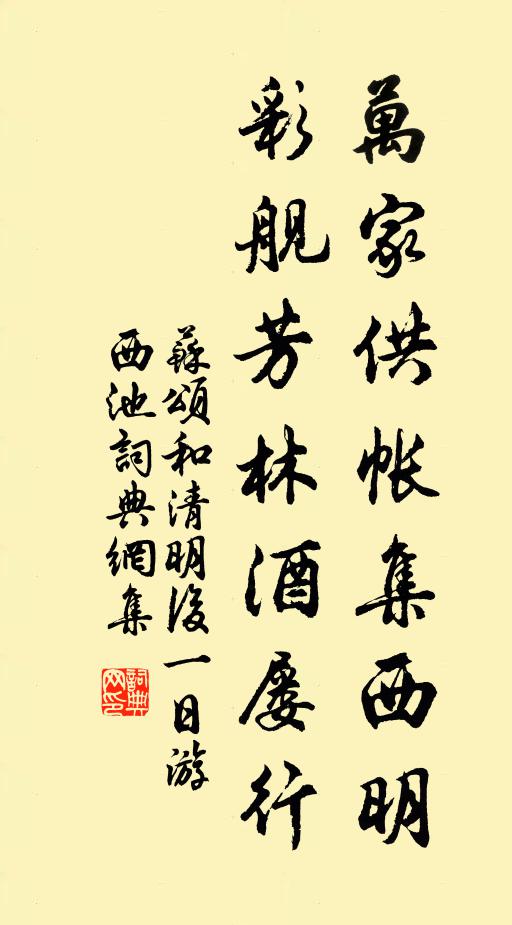 萬家供帳集西明
彩舰芳林酒屢行
蘇頌和清明後一日游
西池詞典網集
詞典
网印